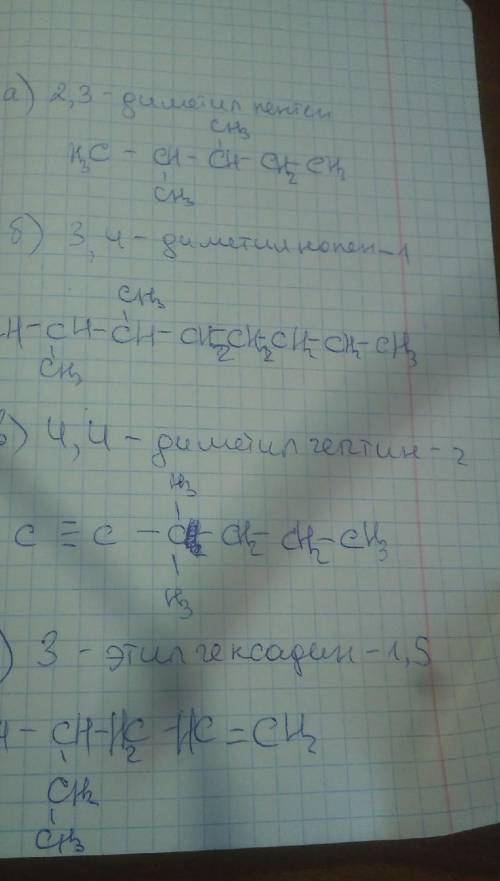 а) 2,3-диметилпентан
CH₃
H₃C - CH - CH - CH₂ CH₃
CH₃
б) 3,4-диметилнонен-1
CH₃
H - CH - CH - CH₂ - CH₂ - CH₂ - CH₂ - CH₃
CH₃
в) 4,4-диметилгептин-2
H₃
C ≡ C - C - CH₂ - CH₂ - CH₃
H₃
) 3-этилгексадиен-1,5
H - CH - H₂C - HC = CH₂
CH₂
CH₃